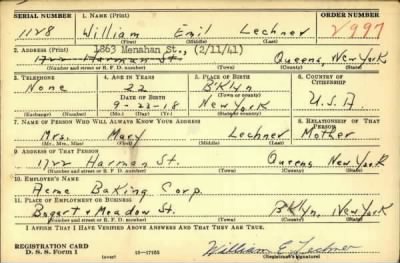 SERIAL NUMBER 1. NAME (Print) ORDER NUMBER
1128 William Emil Lechner 2997
(First) (Middle) (Last)
2. ADDRESS (Print) 1863 Menahan St., (2/11/41)
1722 Harman St. Queens, New York
(Number and street or R. F. D. number) (Town) (County) (State)
3. TELEPHONE 4. AGE IN YEARS 5. PLACE OF BIRTH 6. COUNTRY OF CITIZENSHIP
None 22 B'klyn
DATE OF BIRTH (Town or county)
9-22-18 New York U.S.A
(Exchange) (Number) (Mo.) (Day) (Yr.) (State or country)
7. NAME OF PERSON WHO WILL ALWAYS KNOW YOUR ADDRESS 8. RELATIONSHIP OF THAT PERSON
Mrs. Mary Lechner Mother
(Mr., Mrs., Miss) (First) (Middle) (Last)
9. ADDRESS OF THAT PERSON
1722 Harman St. Queens New York
(Number and street or R. F. D. number) (Town) (County) (State)
10. EMPLOYER'S NAME
Acme Baking Corp.
11. PLACE OF EMPLOYMENT OR BUSINESS
Bogart + Meadow St. B'klyn, New York
(Number and street or R. F. D. number) (Town) (County) (State)
I AFFIRM THAT I HAVE VERIFIED ABOVE ANSWERS AND THAT THEY ARE TRUE.
REGISTRATION CARD
D. S. S. Form 1 (over) 16-17105 William E. Lechner
(Registrant's signature)